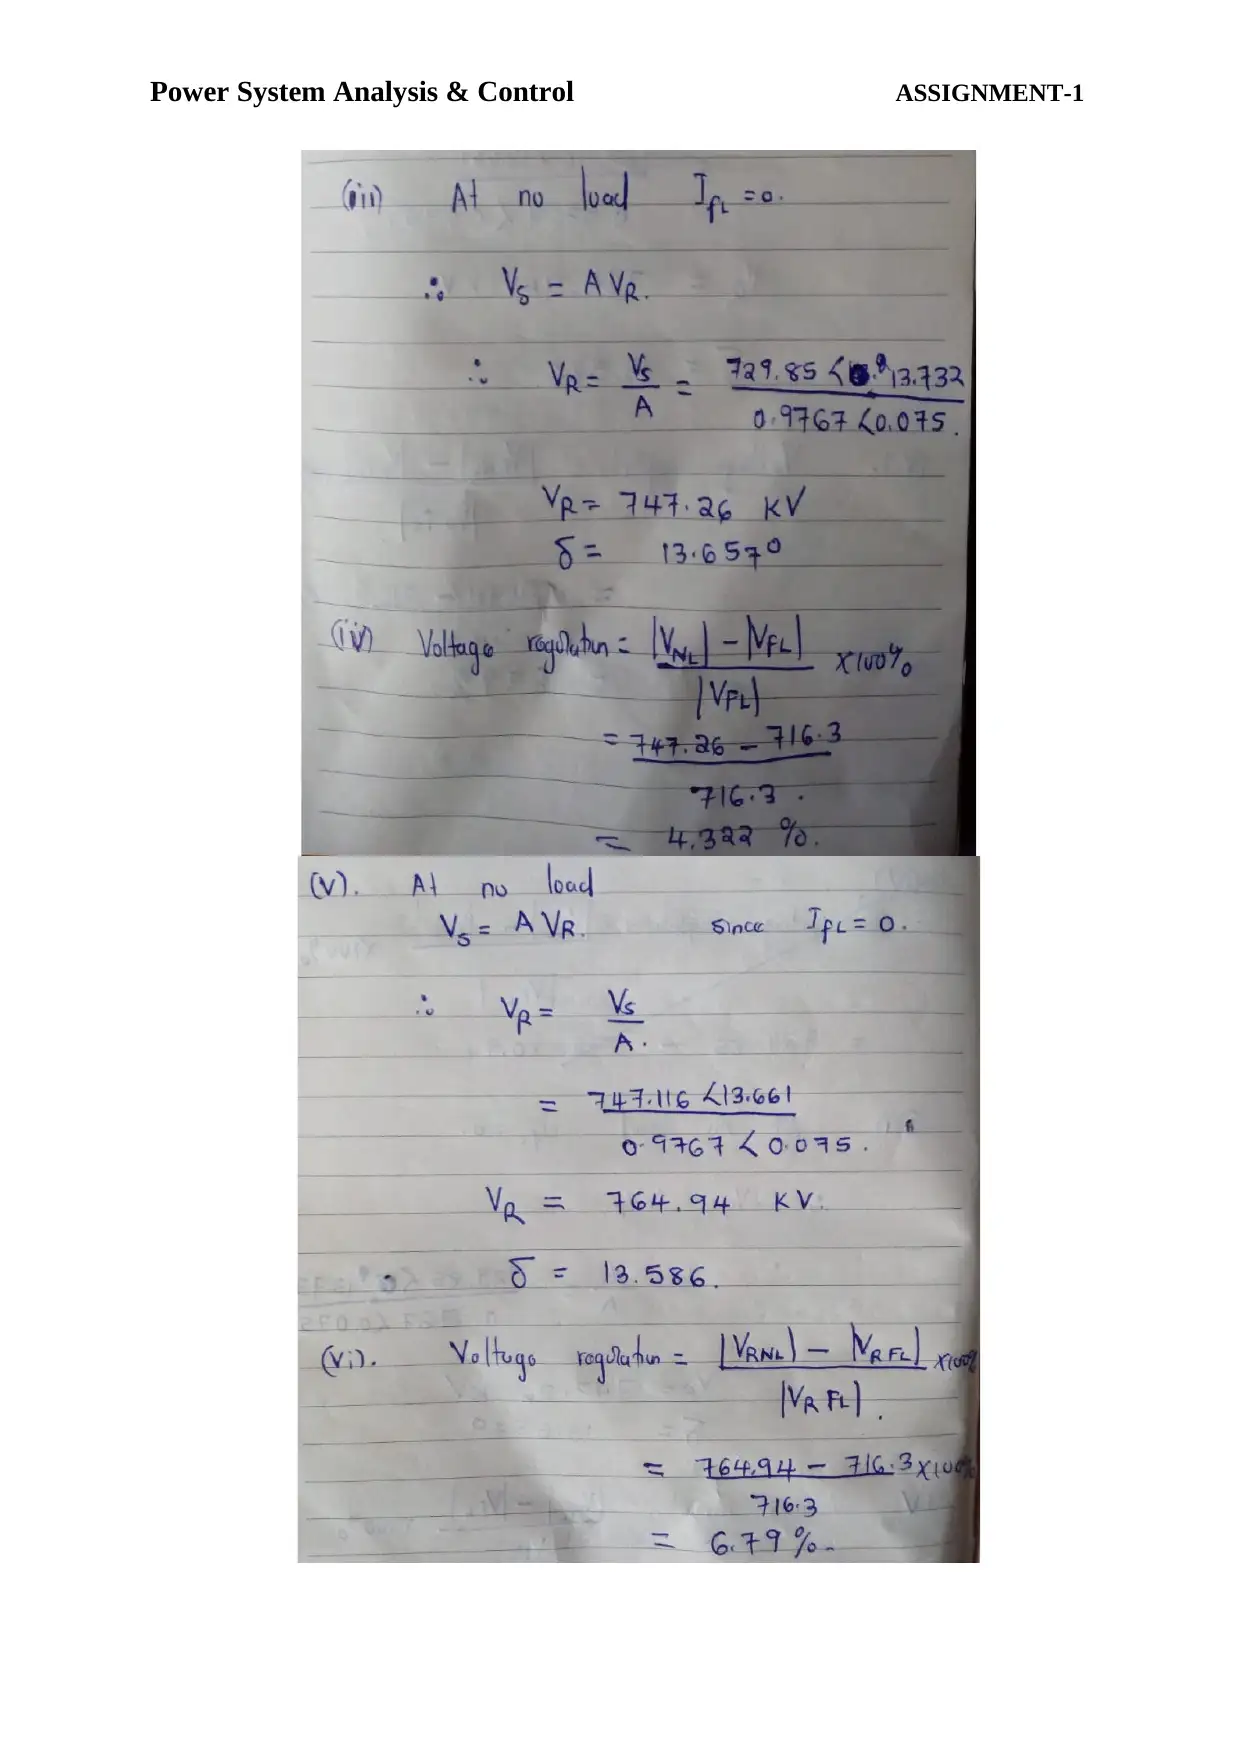 Power System Analysis & Control ASSIGNMENT-1
(iii) At no load I_fL = 0.
∴ V_S = A V_R.
∴ V_R = V_S / A = 729.85 ∠ 13.732 / 0.9767 ∠0.075.
V_R = 747.26 KV
δ = 13.657°
(iv) Voltage regulation = |V_NL| - |V_FL| / |V_FL| X100%
= 747.26 - 716.3 / 716.3.
= 4.322 %.
(v). At no load
V_S = A V_R. since I_fL = 0.
∴ V_R = V_S / A.
= 747.116 ∠13.661 / 0.9767 ∠ 0.075.
V_R = 764.94 KV.
δ = 13.586.
(vi). Voltage regulation = |V_RNL| - |V_R FL| / |V_R FL|. X100%
= 764.94 - 716.3 / 716.3 X100%
= 6.79 %.